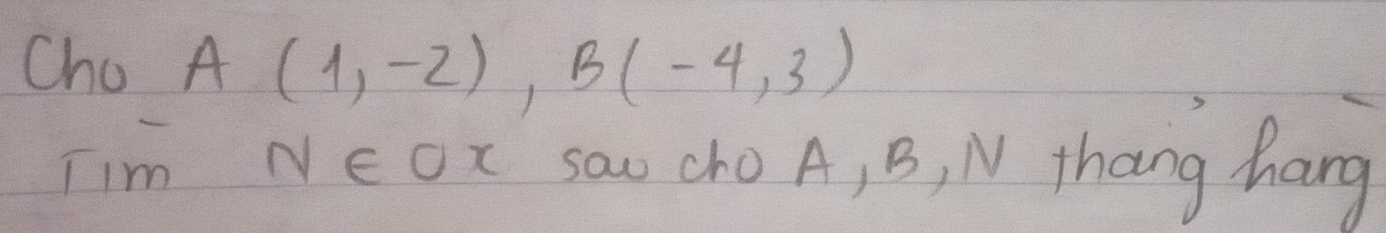 Cho A (1,-2), B(-4,3)
Tìm N ∈ Ox sao cho A, B, N thẳng hàng